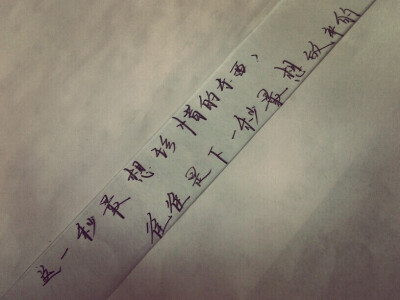 这一秒最想珍惜的东西，
往往是下一秒最想放弃的